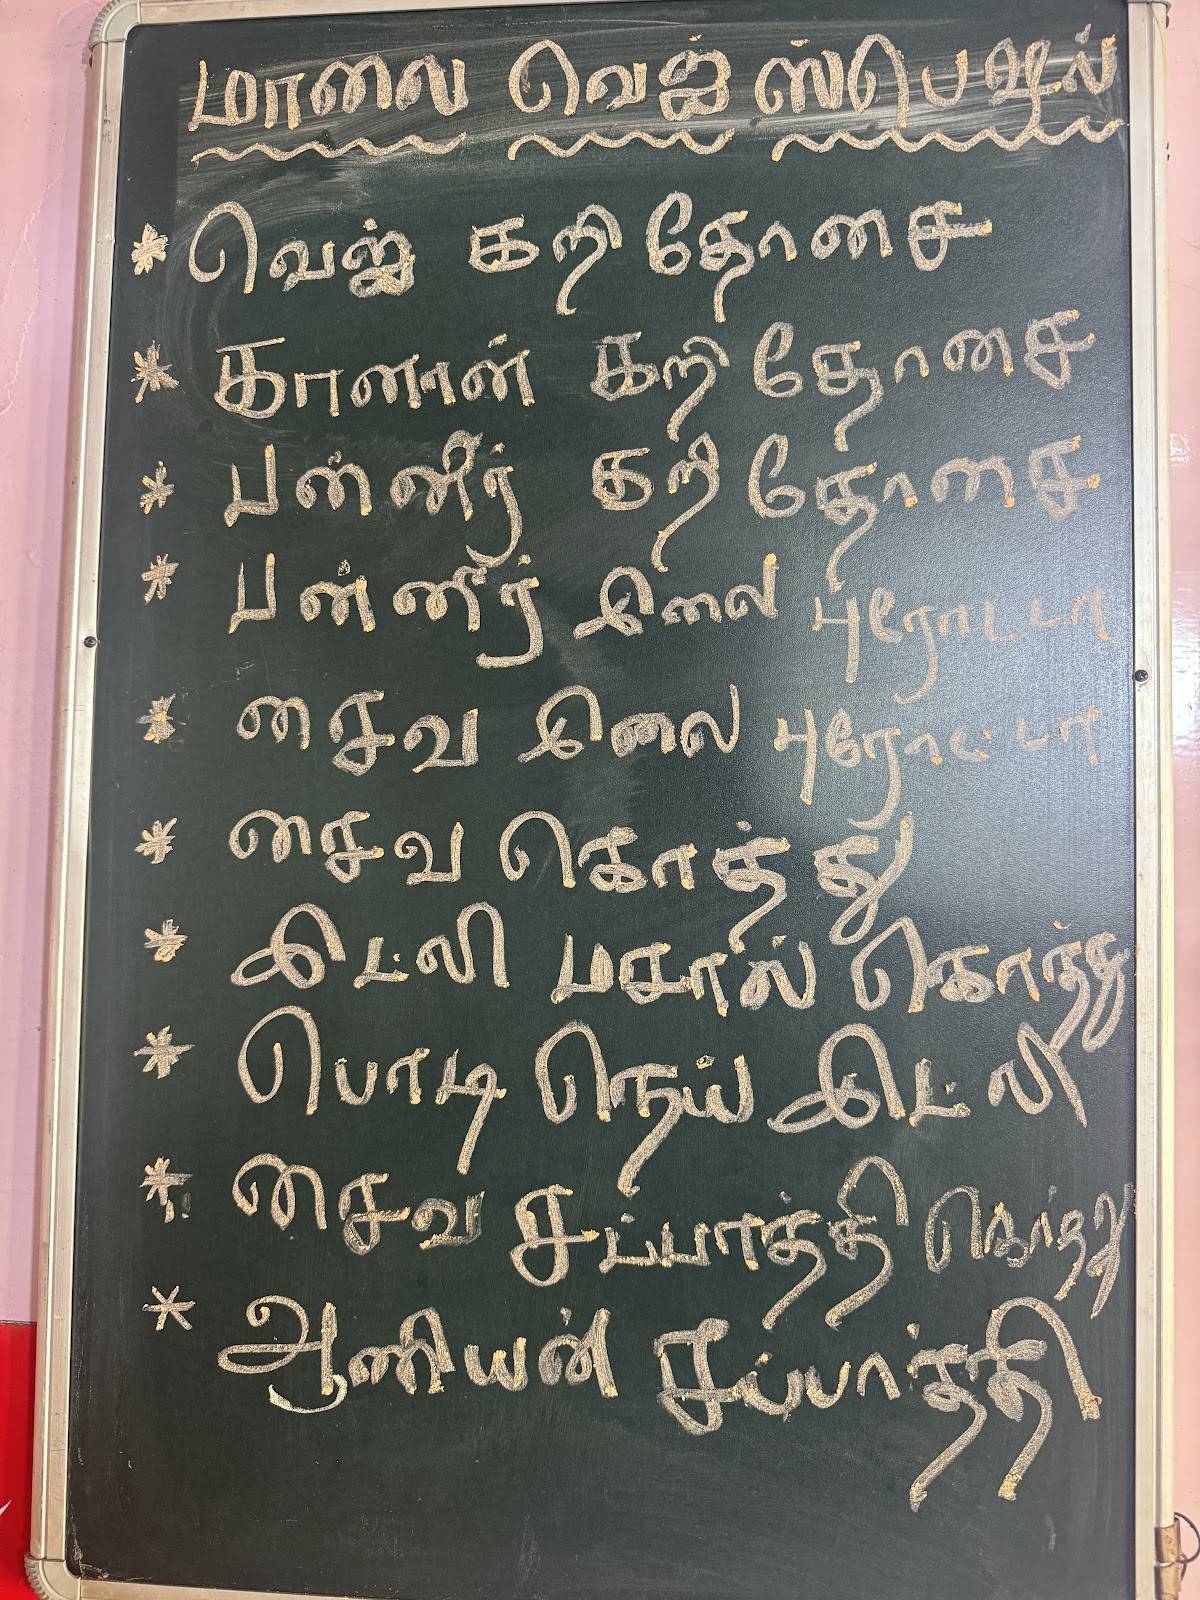 மாலை வெஜ் ஸ்பெஷல்
* வெஜ் கறி தோசை
* காளான் கறி தோசை
* பன்னீர் கறி தோசை
* பன்னீர் இலை புரோட்டா
* சைவ இலை புரோட்டா
* சைவ கொத்து
* இட்லி மசால் கொத்து
* பொடி நெய் இட்லி
* சைவ சப்பாத்தி கொத்து
* ஆனியன் சப்பாத்தி